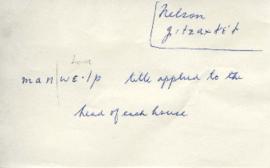 Nelson
man|we·lp title applied to the
head of each house